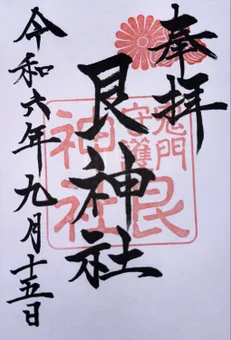 奉拝
艮神社
鬼門
守護
艮
神社
令和六年九月十五日